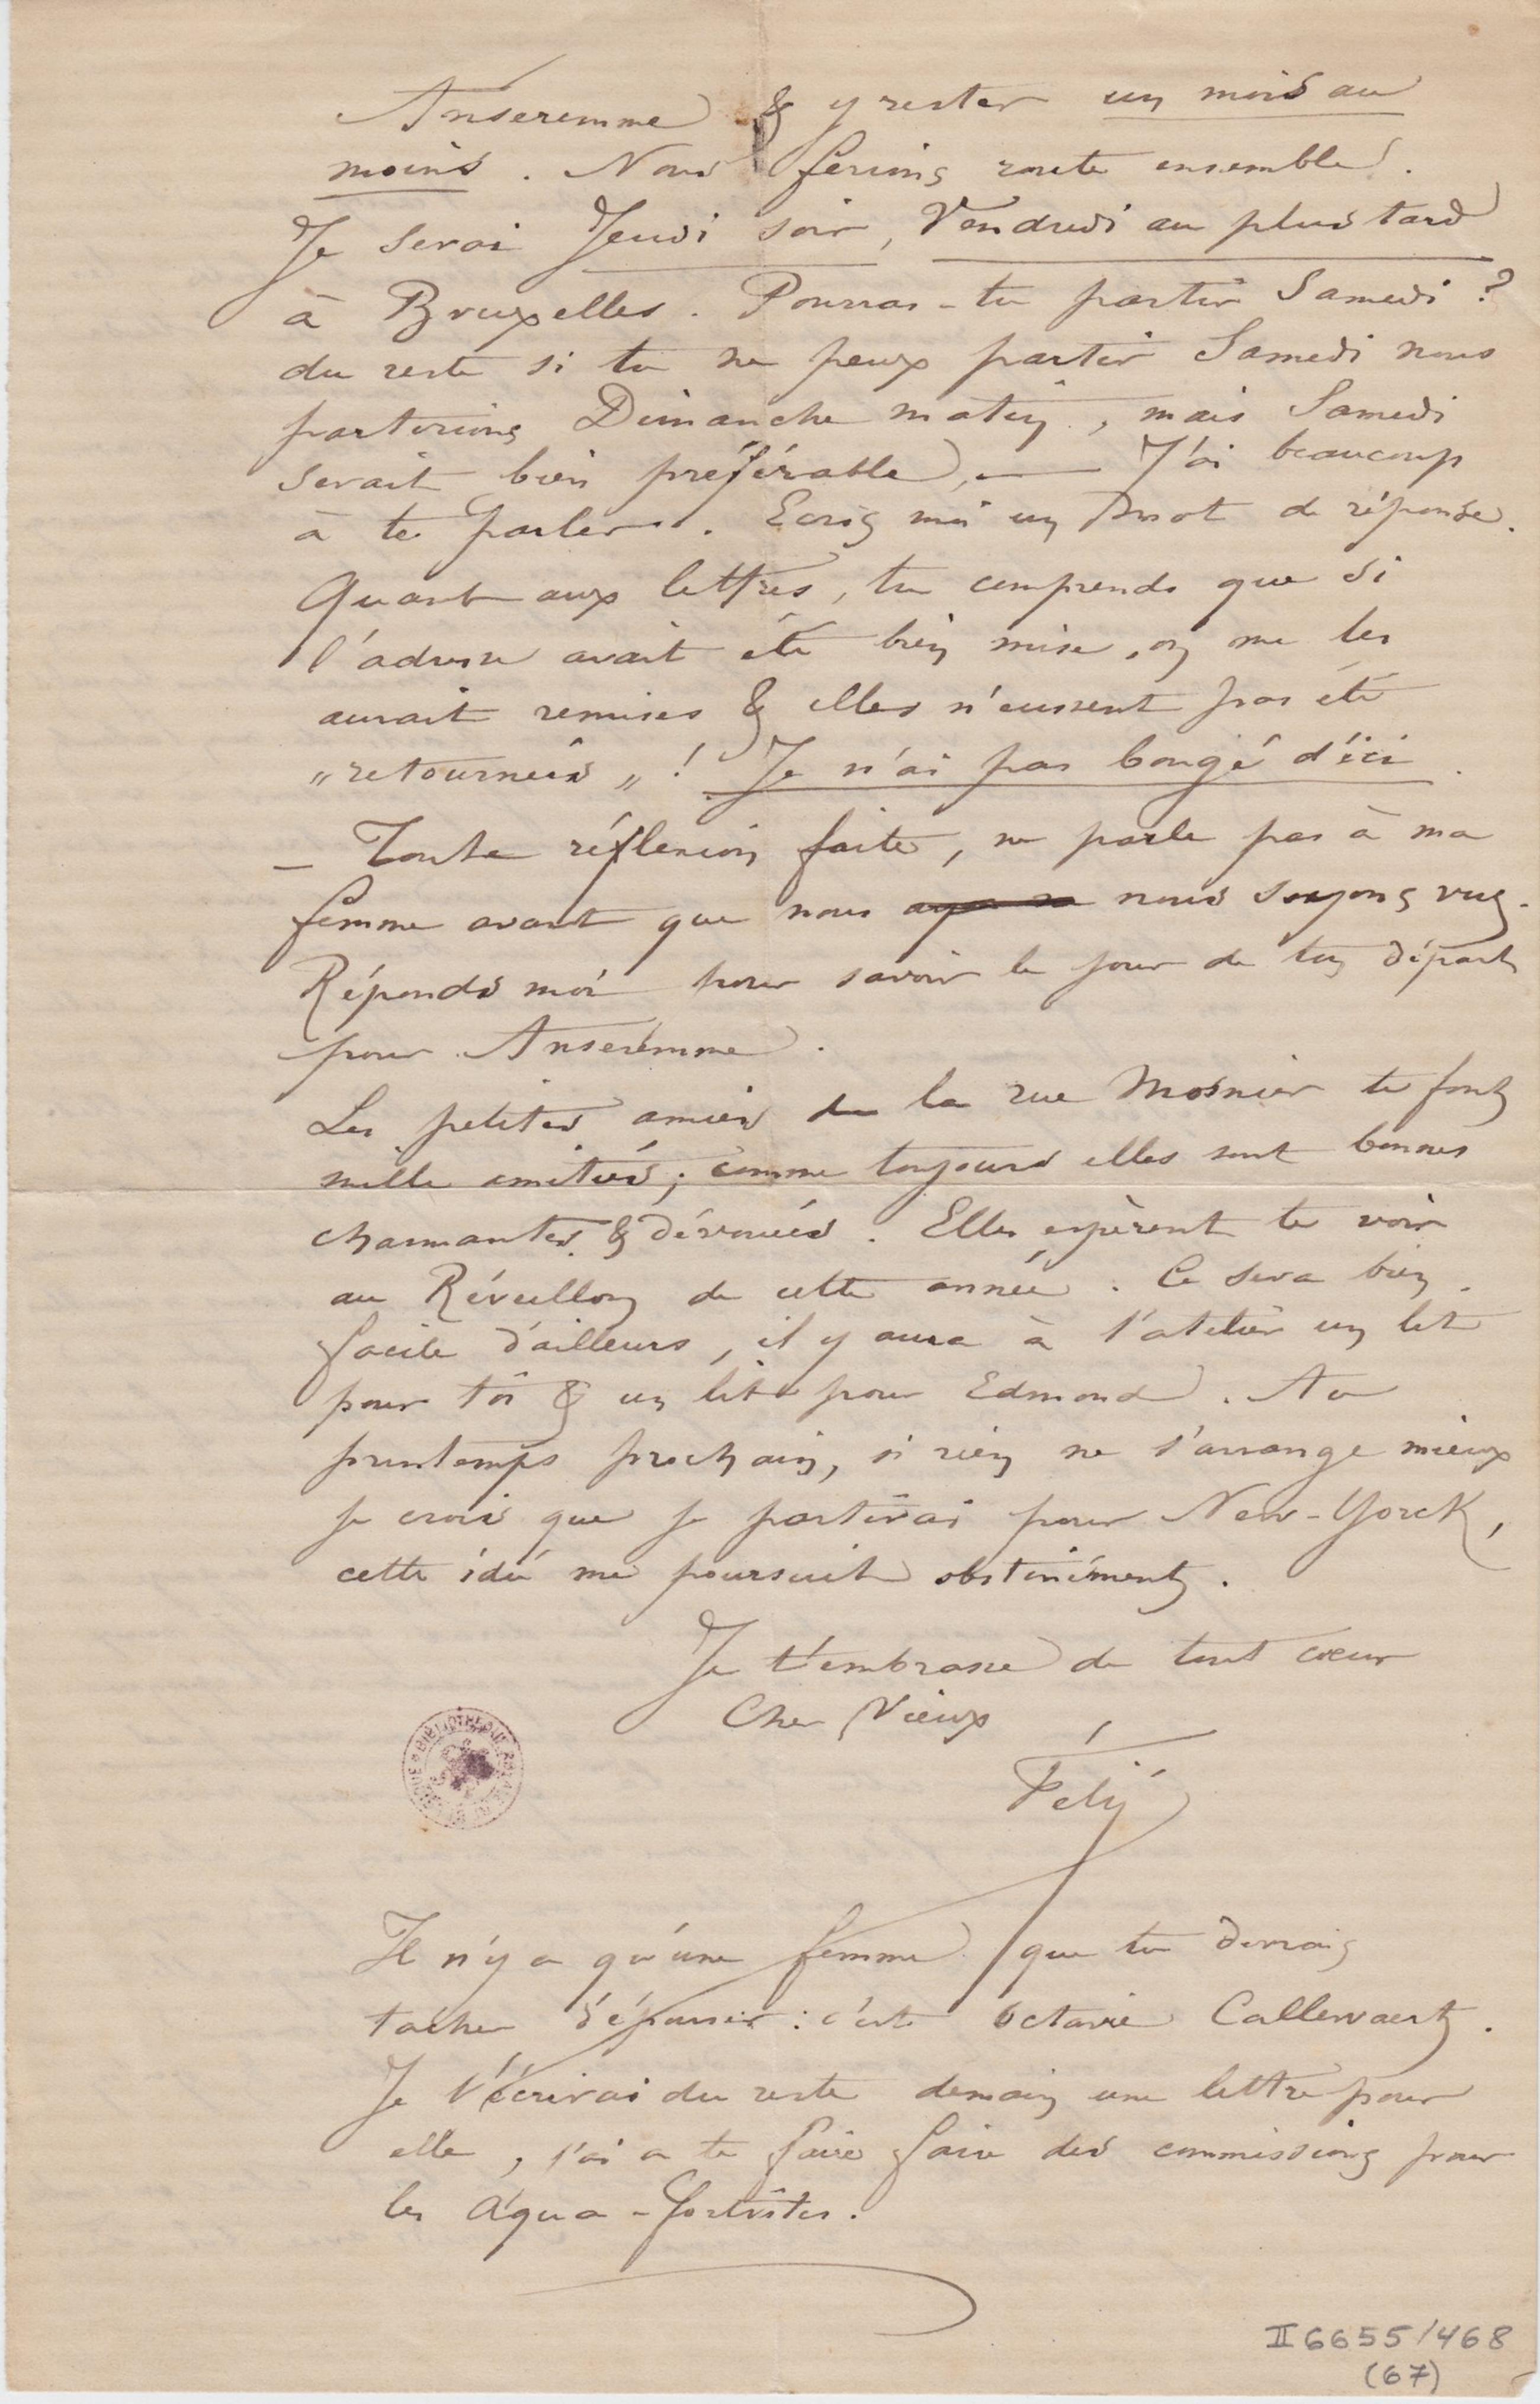 Anseremme & y rester un mois au
moins. Nous ferions route ensemble.
Je serai Jeudi soir, Vendredi au plus tard
à Bruxelles. Pourras-tu partir Samedi ?
du reste si tu ne peux partir Samedi nous
partirions Dimanche matin, mais Samedi
serait bien préférable, — J'ai beaucoup
à te parler. Ecris moi un mot de réponse.
Quant aux lettres, tu comprends que si
l'adresse avait été bien mise, on me les
aurait remises & elles n'eussent pas été
„retournées„ ! Je n'ai pas bougé d'ici.
— Toute réflexion faite, ne parle pas à ma
femme avant que nous nous soyons vus.
Réponds moi pour savoir le jour de ton départ
pour Anseremme.
Les petites amies de la rue Mosnier te font
mille amitiés ; comme toujours elles sont bonnes
charmantes & dévouées. Elles espèrent te voir
au Réveillon de cette année. Ce sera bien
facile d'ailleurs, il y aura à l'atelier un lit
pour toi & un lit pour Edmond. Au
printemps prochain, si rien ne s'arrange mieux
je crois que je partirai pour New-Yorck,
cette idée me poursuit obstinément.
Je t'embrasse de tout cœur
Cher Vieux
Fély
Il n'y a qu'une femme que tu devrais
tacher d'épouser : c'est Octavie Callewaert.
Je t'écrirai du reste demain une lettre pour
elle, j'ai a te faire faire des commissions pour
les Aqua-fortistes.
II 6655/468
(67)